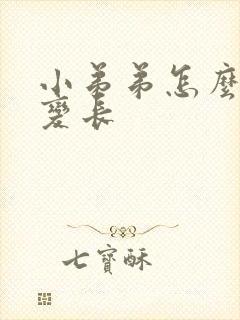 小弟弟怎麼
變長
七寶酥